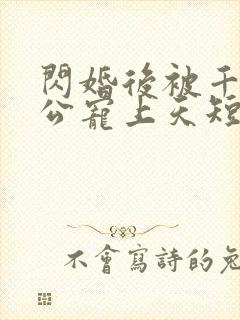 閃婚後被千
公寵上天短
不會寫詩的兔